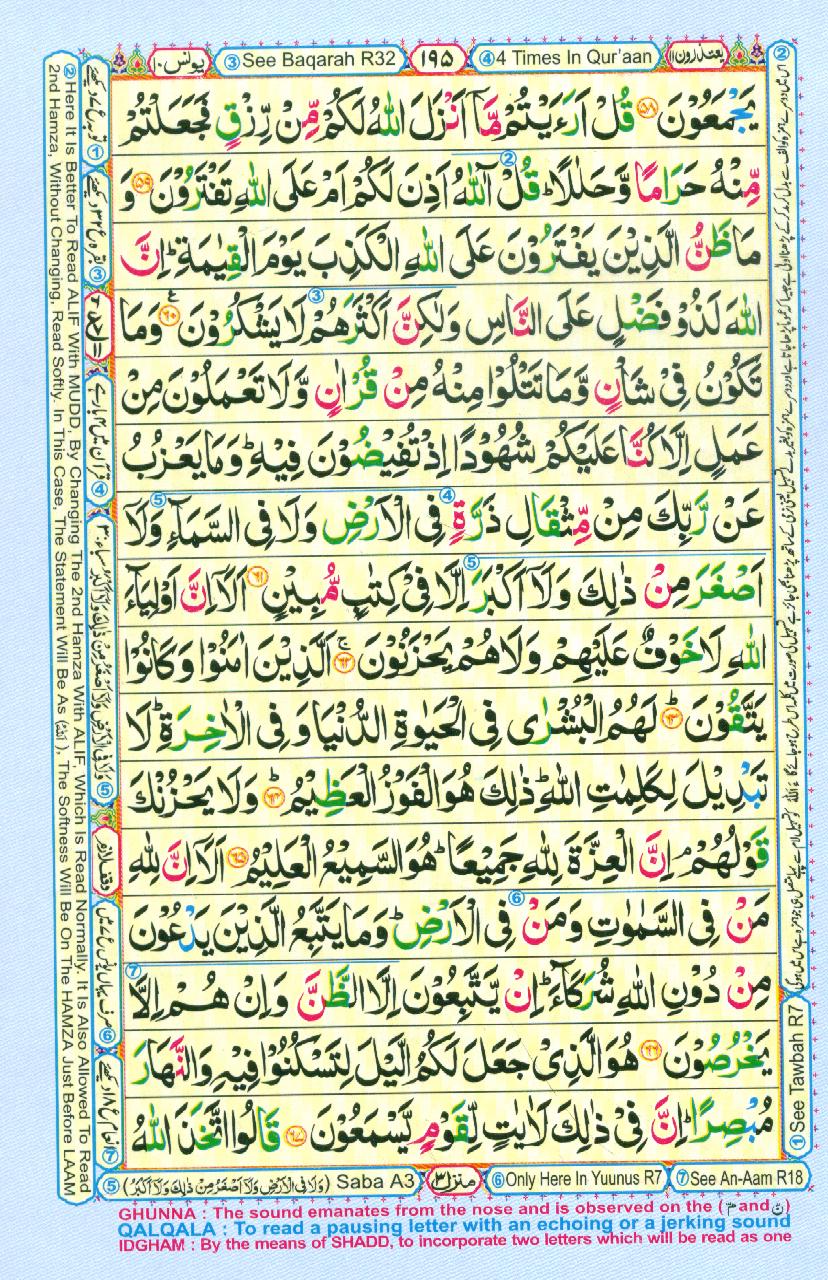 یونس ۱۰
③ See Baqarah R32
۱۹۵
④ 4 Times In Qur'aan
یعتذرون ۱۱
يَجْمَعُوْنَ ﴿۵۸﴾ قُلْ اَرَءَيْتُمْ مَّاۤ اَنْزَلَ اللّٰهُ لَكُمْ مِّنْ رِّزْقٍ فَجَعَلْتُمْ
مِّنْهُ حَرَامًا وَّحَلٰلًا ؕ قُلْ آٰللّٰهُ اَذِنَ لَكُمْ اَمْ عَلَى اللّٰهِ تَفْتَرُوْنَ ﴿۵۹﴾ وَ
مَا ظَنُّ الَّذِيْنَ يَفْتَرُوْنَ عَلَى اللّٰهِ الْكَذِبَ يَوْمَ الْقِيٰمَةِ ؕ اِنَّ
اللّٰهَ لَذُوْ فَضْلٍ عَلَى النَّاسِ وَلٰكِنَّ اَكْثَرَهُمْ لَا يَشْكُرُوْنَ ﴿۶۰﴾ وَمَا
تَكُوْنُ فِيْ شَاْنٍ وَّمَا تَتْلُوْا مِنْهُ مِنْ قُرْاٰنٍ وَّلَا تَعْمَلُوْنَ مِنْ
عَمَلٍ اِلَّا كُنَّا عَلَيْكُمْ شُهُوْدًا اِذْ تُفِيْضُوْنَ فِيْهِ ؕ وَمَا يَعْزُبُ
عَنْ رَّبِّكَ مِنْ مِّثْقَالِ ذَرَّةٍ فِي الْاَرْضِ وَلَا فِي السَّمَآءِ وَلَاۤ
اَصْغَرَ مِنْ ذٰلِكَ وَلَاۤ اَكْبَرَ اِلَّا فِيْ كِتٰبٍ مُّبِيْنٍ ﴿۶۱﴾ اَلَاۤ اِنَّ اَوْلِيَآءَ
اللّٰهِ لَا خَوْفٌ عَلَيْهِمْ وَلَا هُمْ يَحْزَنُوْنَ ﴿۶۲﴾ ۚ اَلَّذِيْنَ اٰمَنُوْا وَكَانُوْا
يَتَّقُوْنَ ﴿۶۳﴾ ؕ لَهُمُ الْبُشْرٰى فِي الْحَيٰوةِ الدُّنْيَا وَفِي الْاٰخِرَةِ ؕ لَا
تَبْدِيْلَ لِكَلِمٰتِ اللّٰهِ ؕ ذٰلِكَ هُوَ الْفَوْزُ الْعَظِيْمُ ﴿۶۴﴾ ؕ وَلَا يَحْزُنْكَ
قَوْلُهُمْ ۘ اِنَّ الْعِزَّةَ لِلّٰهِ جَمِيْعًا ؕ هُوَ السَّمِيْعُ الْعَلِيْمُ ﴿۶۵﴾ اَلَاۤ اِنَّ لِلّٰهِ
مَنْ فِي السَّمٰوٰتِ وَمَنْ فِي الْاَرْضِ ؕ وَمَا يَتَّبِعُ الَّذِيْنَ يَدْعُوْنَ
مِنْ دُوْنِ اللّٰهِ شُرَكَآءَ ؕ اِنْ يَّتَّبِعُوْنَ اِلَّا الظَّنَّ وَاِنْ هُمْ اِلَّا
يَخْرُصُوْنَ ﴿۶۶﴾ هُوَ الَّذِيْ جَعَلَ لَكُمُ الَّيْلَ لِتَسْكُنُوْا فِيْهِ وَالنَّهَارَ
مُبْصِرًا ؕ اِنَّ فِيْ ذٰلِكَ لَاٰيٰتٍ لِّقَوْمٍ يَّسْمَعُوْنَ ﴿۶۷﴾ قَالُوا اتَّخَذَ اللّٰهُ
① See Tawbah R7
② Here It Is Better To Read ALIF With MUDD, By Changing The 2nd Hamza With ALIF, Which Is Read Normally. It Is Also Allowed To Read
2nd Hamza, Without Changing, Read Softly. In This Case, The Statement Will Be As (ءَاَللّٰهُ), The Softness Will Be On The HAMZA Just Before LAAM
⑤ (وَلَا فِي الْاَرْضِ وَلَاۤ اَصْغَرُ مِنْ ذٰلِكَ وَلَاۤ اَكْبَرُ) Saba A3
منزل ۳
⑥ Only Here In Yuunus R7
⑦ See An-Aam R18
GHUNNA : The sound emanates from the nose and is observed on the (مّ and نّ)
QALQALA : To read a pausing letter with an echoing or a jerking sound
IDGHAM : By the means of SHADD, to incorporate two letters which will be read as one